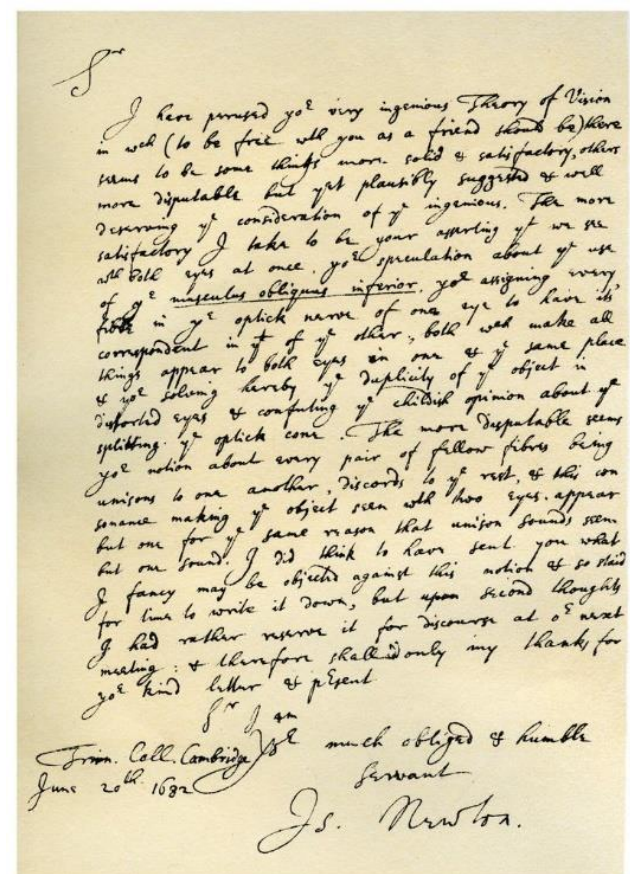 Sr
I have perused yor very ingenious Theory of Vision
in wch (to be free wth you as a friend should be) there
seems to be some things more solid & satisfactory, others
more disputable but yet plausibly suggested & well
deserving ye consideration of ye ingenious. The more
satisfactory I take to be your asserting yt we see
wth both eyes at once, yor speculation about ye use
of ye musculus obliquus inferior, yor assigning every
fibre in ye optick nerve of one eye to have its
correspondent in yt of ye other, both wch make all
things appear to both eyes in one & ye same place
& yor solving hereby ye duplicity of ye object in
distorted eyes & confuting ye childish opinion about ye
splitting ye optick cone. The more disputable seems
yor notion about every pair of fellow fibres being
unisons to one another, discords to ye rest, & this con
sonance making ye object seen wth two eyes appear
but one for ye same reason that unison sounds seem
but one sound. I did think to have sent you what
I fancy may be objected against this notion & so staid
for time to write it down, but upon second thoughts
I had rather reserve it for discourse at or next
meeting: & therefore shall add only my thanks for
yor kind letter & present
Sr I am
Trin. Coll. Cambridge yor much obliged & humble
June 20th. 1682 Servant
Is. Newton.